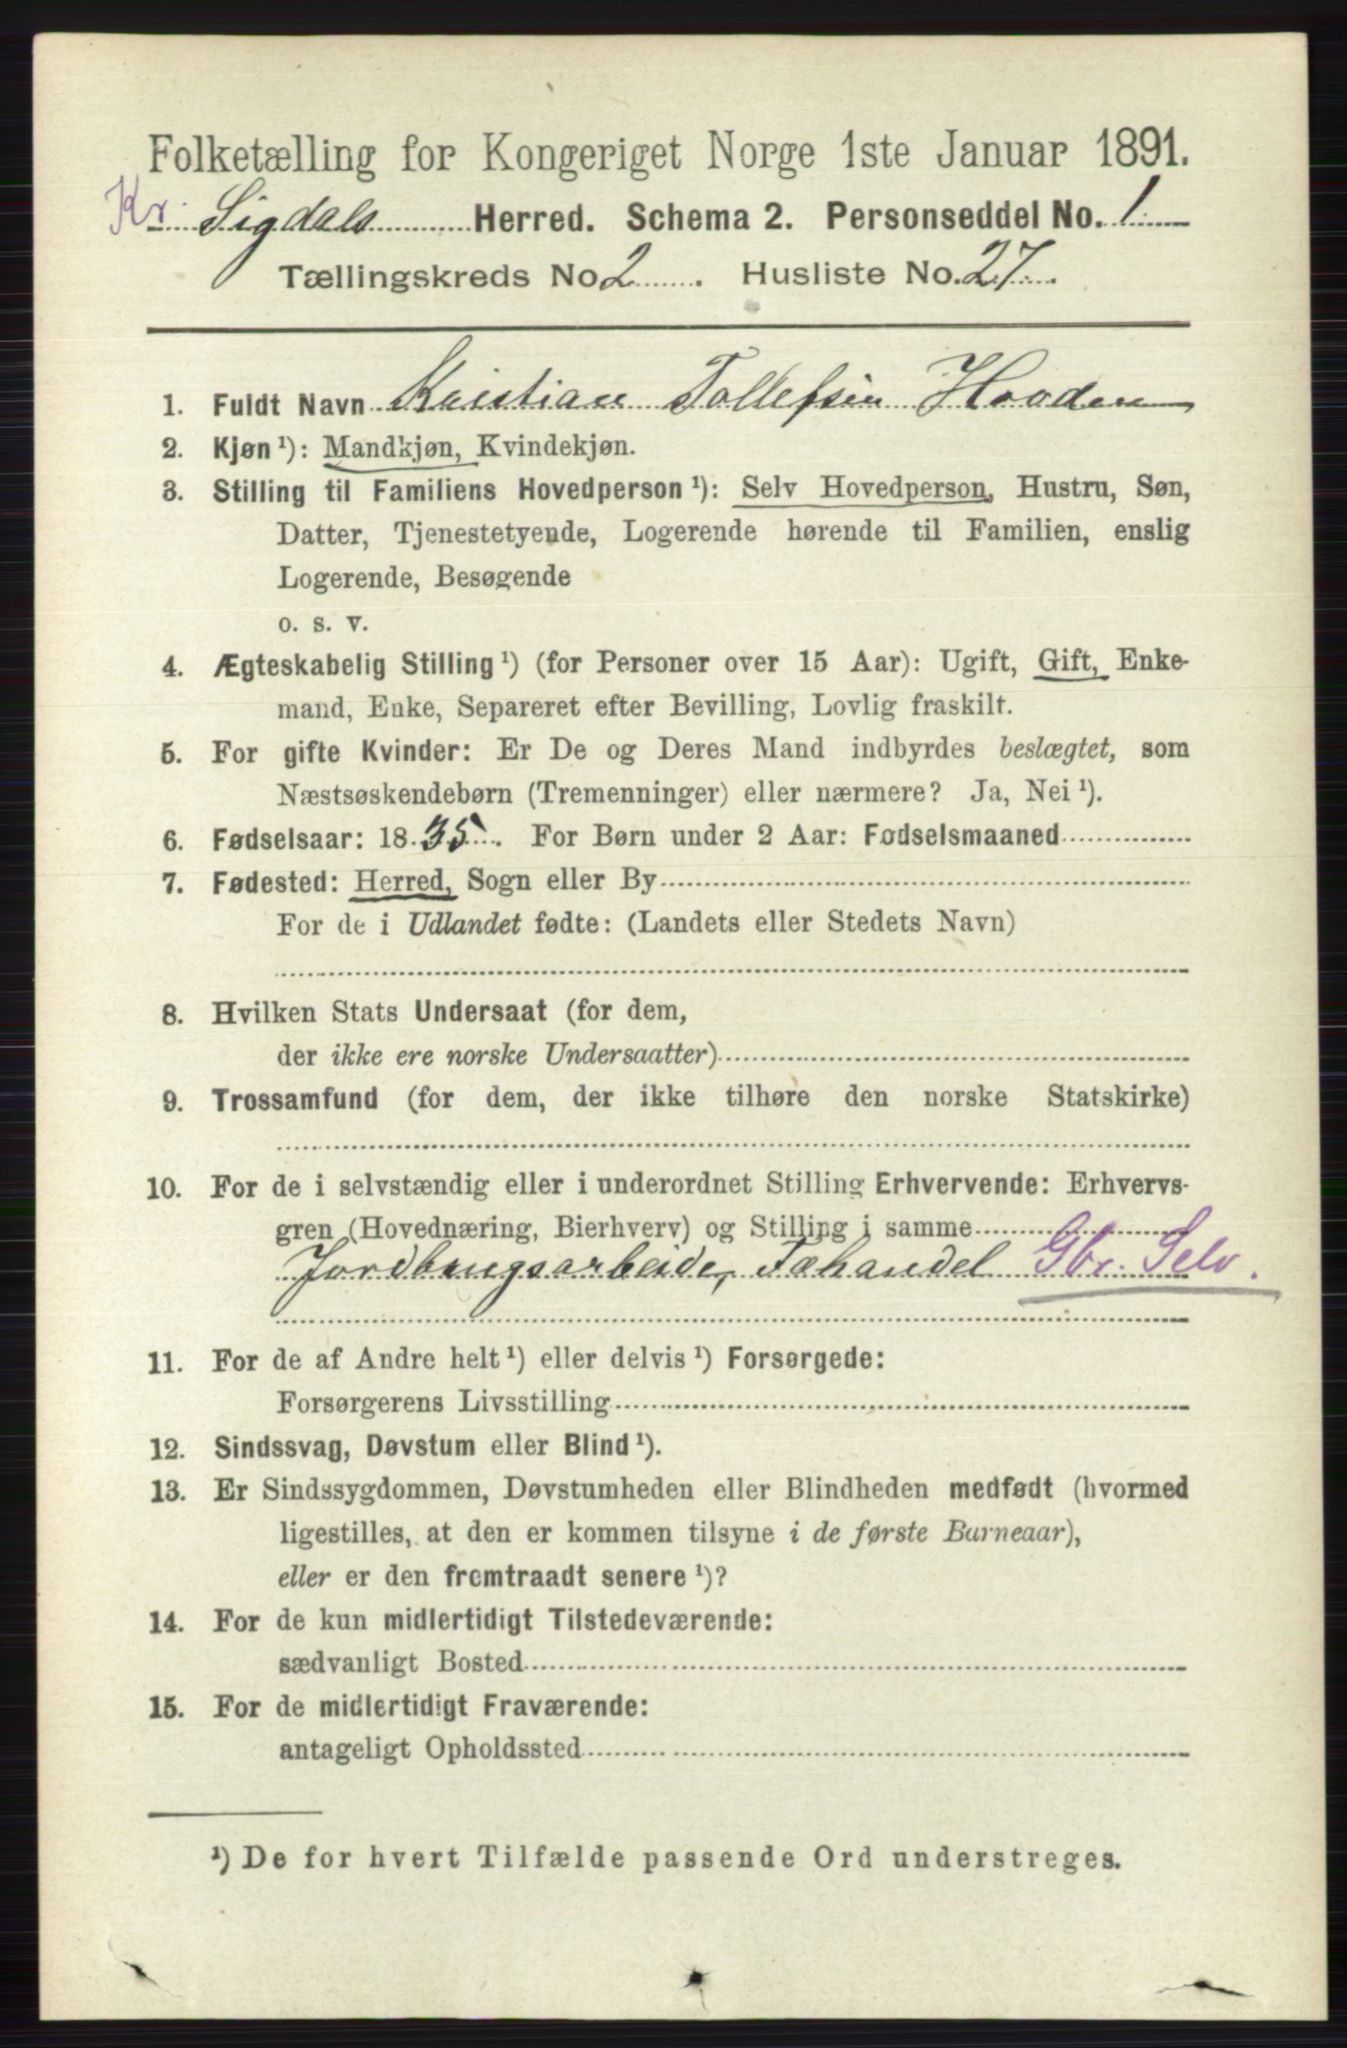 Folketælling for Kongeriget Norge 1ste Januar 1891.
Kr. Sigdals Herred. Schema 2. Personseddel No. 1
Tællingskreds No. 2 . Husliste No. 27.
1. Fuldt Navn Kristian Tollefsen
2. Kjøn ¹): Mandkjøn, Kvindekjøn.
3. Stilling til Familiens Hovedperson ¹): Selv Hovedperson, Hustru, Søn,
Datter, Tjenestetyende, Logerende hørende til Familien, enslig
Logerende, Besøgende
o. s. v.
4. Ægteskabelig Stilling ¹) (for Personer over 15 Aar): Ugift, Gift, Enke-
mand, Enke, Separeret efter Bevilling, Lovlig fraskilt.
5. For gifte Kvinder: Er De og Deres Mand indbyrdes beslægtet, som
Næstsøskendebørn (Tremenninger) eller nærmere? Ja, Nei ¹).
6. Fødselsaar: 1835. For Børn under 2 Aar: Fødselsmaaned
7. Fødested: Herred, Sogn eller By
For de i Udlandet fødte: (Landets eller Stedets Navn)
8. Hvilken Stats Undersaat (for dem,
der ikke ere norske Undersaatter)
9. Trossamfund (for dem, der ikke tilhøre den norske Statskirke)
10. For de i selvstændig eller i underordnet Stilling Erhvervende: Erhvervs-
gren (Hovednæring, Bierhverv) og Stilling i samme
Jordbrugsarbeide, Fæhandel Gbr. Selv.
11. For de af Andre helt ¹) eller delvis ¹) Forsørgede:
Forsørgerens Livsstilling
12. Sindssvag, Døvstum eller Blind ¹).
13. Er Sindssygdommen, Døvstumheden eller Blindheden medfødt (hvormed
ligestilles, at den er kommen tilsyne i de første Barneaar),
eller er den fremtraadt senere ¹)?
14. For de kun midlertidigt Tilstedeværende:
sædvanligt Bosted
15. For de midlertidigt Fraværende:
antageligt Opholdssted
¹) De for hvert Tilfælde passende Ord understreges.